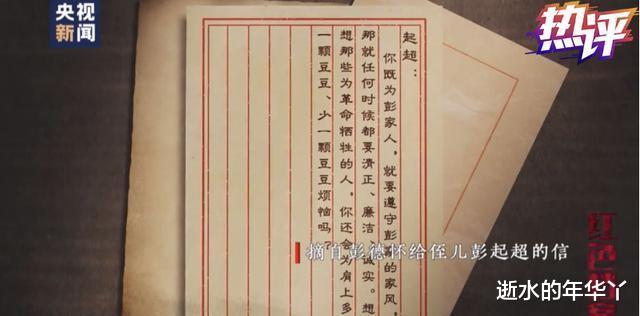 央视
新闻
热评
起超：
你既为彭家人，就要遵守彭家的家风，
那就任何时候都要清正、廉洁、诚实。想
想那些为革命牺牲的人，你还会为肩上多
一颗豆豆、少一颗豆豆烦恼吗？
摘自彭德怀给侄儿彭起超的信
红色档案
逝水的年华丫